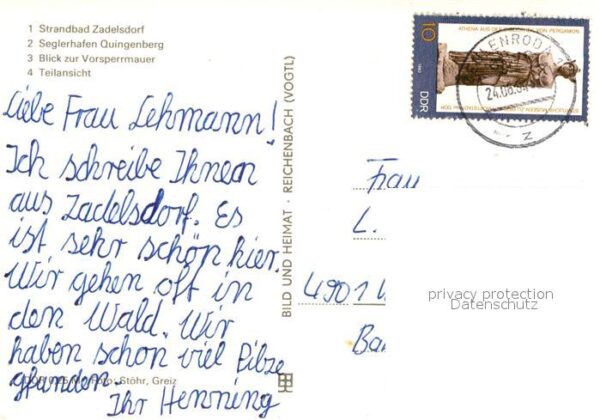 1 Strandbad Zadelsdorf
2 Seglerhafen Quingenberg
3 Blick zur Vorsperrmauer
4 Teilansicht
Liebe Frau Lehmann!
Ich schreibe Ihnen
aus Zadelsdorf. Es
ist sehr schön hier.
Wir gehen oft in
den Wald. Wir
haben schon viel Pilze
gfunden.
Ihr Henning
Foto: Stöhr, Greiz
BILD UND HEIMAT · REICHENBACH (VOGTL)
ATHENA AUS DER BIBLIOTHEK VON PERGAMON
10
DDR
LENRODA
24.08.
Z
Frau
L.
4901
privacy protection
Datenschutz